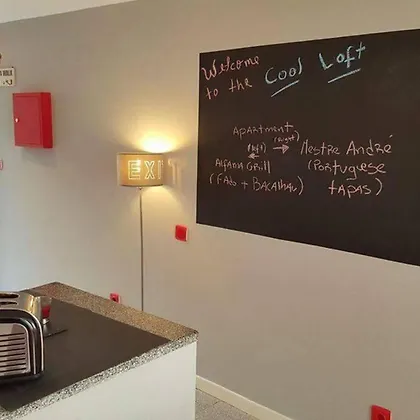 Welcome
to the Cool Loft
Apartment
(left) (Right)
Alfama Grill
(Fado + Bacalhau)
Mestre André
(Portuguese
tapas)
EXIT